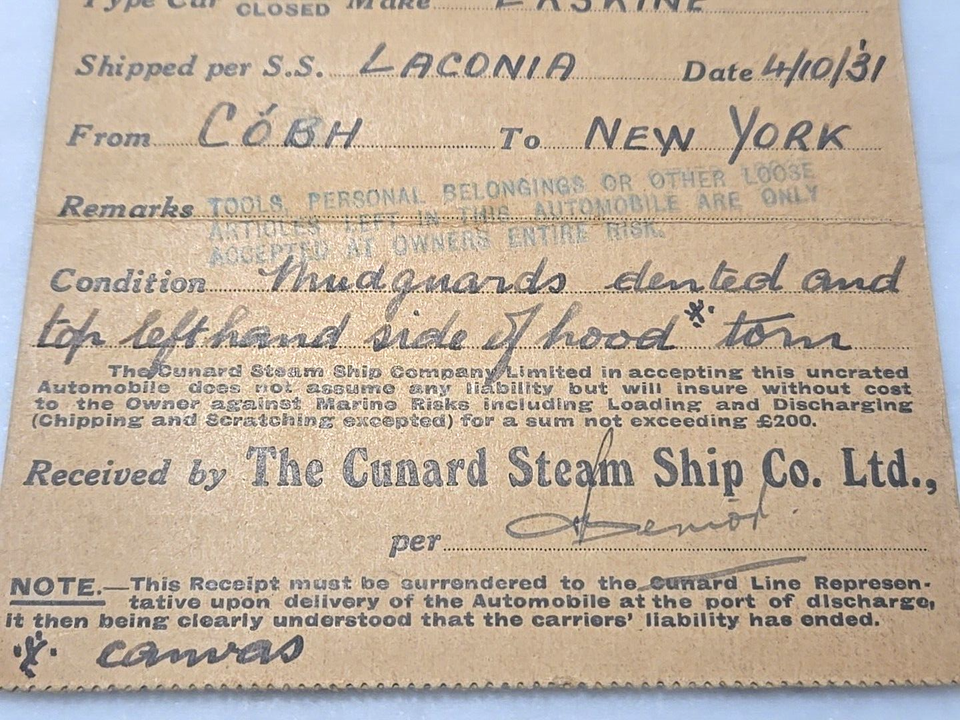 Type Car CLOSED Make ERSKINE
Shipped per S.S. LACONIA Date 4/10/31
From CÓBH To NEW YORK
Remarks TOOLS, PERSONAL BELONGINGS OR OTHER LOOSE
ARTICLES LEFT IN THIS AUTOMOBILE ARE ONLY
ACCEPTED AT OWNERS ENTIRE RISK.
Condition Mudguards dented and
top lefthand side of hood* torn
The Cunard Steam Ship Company Limited in accepting this uncrated
Automobile does not assume any liability but will insure without cost
to the Owner against Marine Risks including Loading and Discharging
(Chipping and Scratching excepted) for a sum not exceeding £200.
Received by The Cunard Steam Ship Co. Ltd.,
per
NOTE.—This Receipt must be surrendered to the Cunard Line Represen-
tative upon delivery of the Automobile at the port of discharge,
it then being clearly understood that the carriers' liability has ended.
* canvas